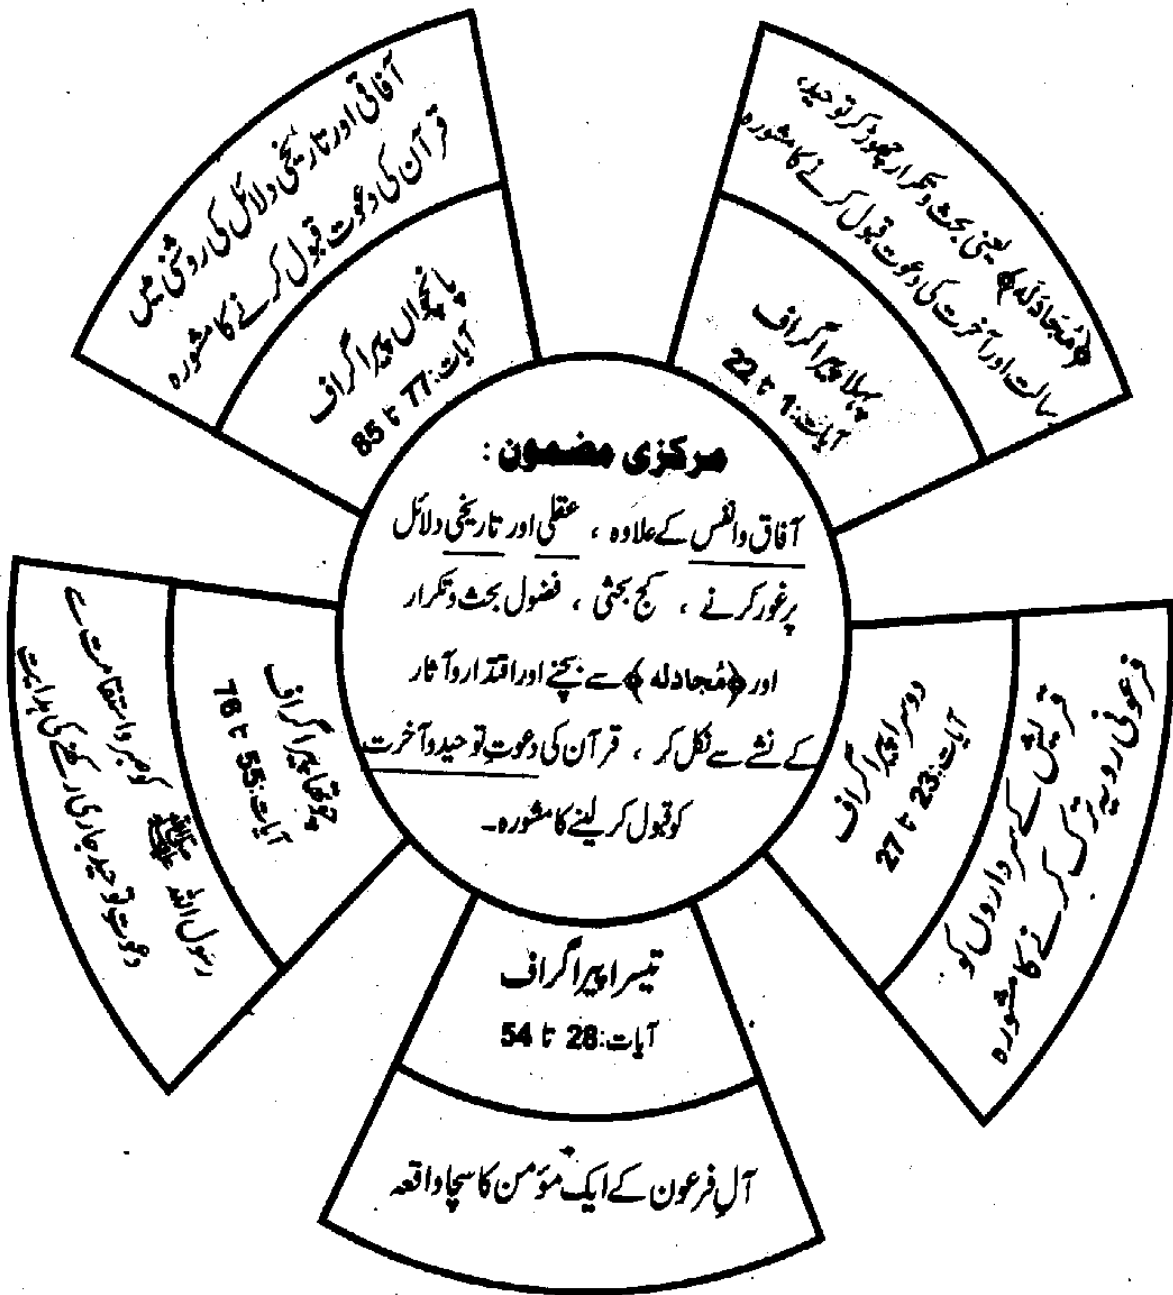 مرکزی مضمون :
آفاق وانفس کے علاوہ ، عقلی اور تاریخی دلائل
پرغور کرنے ، کج بحثی ، فضول بحث وتکرار
اور ﴿مُجادلہ﴾ سے بچنے اور اقتدار وآثار
کے نشے سے نکل کر ، قرآن کی دعوتِ توحید وآخرت
کو قبول کر لینے کا مشورہ۔
پہلا پیراگراف
آیات:1 تا 22
﴿مُجَادَلَہ﴾ یعنی بحث وتکرار چھوڑ کر توحید،
رسالت اور آخرت کی دعوت قبول کرنے کا مشورہ
دوسرا پیراگراف
آیات:23 تا 27
قریش کے سرداروں کو
فرعونی رویہ ترک کرنے کا مشورہ
تیسرا پیراگراف
آیات:28 تا 54
آلِ فرعون کے ایک مؤمن کا سچا واقعہ
چوتھا پیراگراف
آیات:55 تا 76
رسول اللہ ﷺ کو صبر واستقامت سے
دعوتِ توحید جاری رکھنے کی ہدایت
پانچواں پیراگراف
آیات:77 تا 85
آفاقی اور تاریخی دلائل کی روشنی میں
قرآن کی دعوت قبول کرنے کا مشورہ